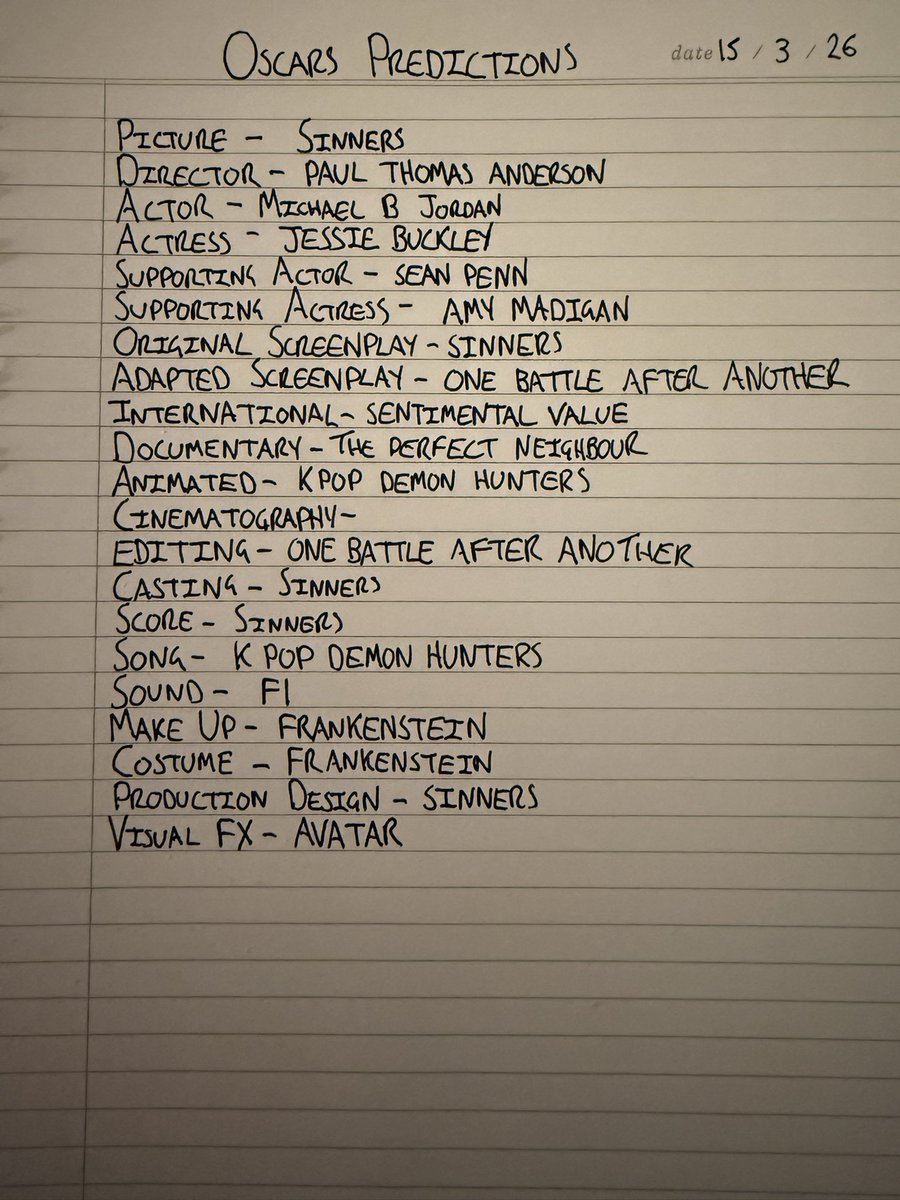 OSCARS PREDICTIONS
date 15 / 3 / 26
PICTURE - SINNERS
DIRECTOR - PAUL THOMAS ANDERSON
ACTOR - MICHAEL B JORDAN
ACTRESS - JESSIE BUCKLEY
SUPPORTING ACTOR - SEAN PENN
SUPPORTING ACTRESS - AMY MADIGAN
ORIGINAL SCREENPLAY - SINNERS
ADAPTED SCREENPLAY - ONE BATTLE AFTER ANOTHER
INTERNATIONAL - SENTIMENTAL VALUE
DOCUMENTARY - THE PERFECT NEIGHBOUR
ANIMATED - KPOP DEMON HUNTERS
CINEMATOGRAPHY -
EDITING - ONE BATTLE AFTER ANOTHER
CASTING - SINNERS
SCORE - SINNERS
SONG - K POP DEMON HUNTERS
SOUND - F1
MAKE UP - FRANKENSTEIN
COSTUME - FRANKENSTEIN
PRODUCTION DESIGN - SINNERS
VISUAL FX - AVATAR